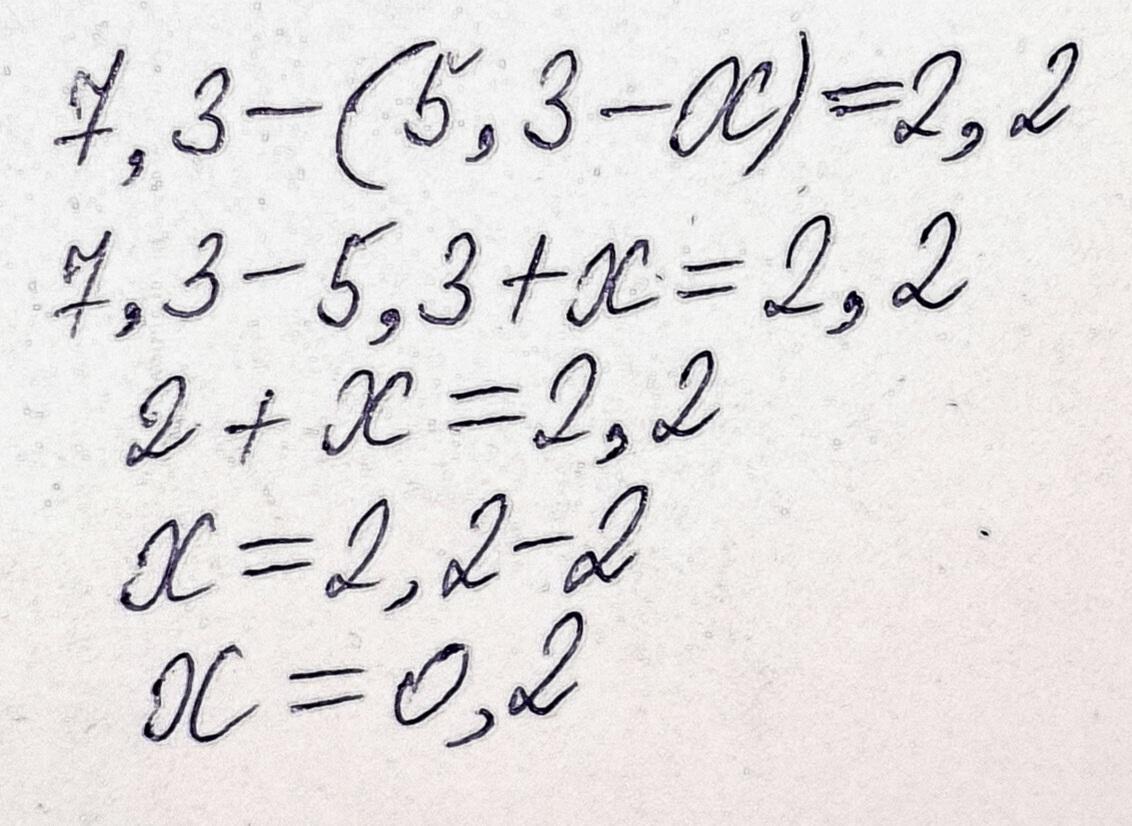 7,3-(5,3-x)=2,2
7,3-5,3+x=2,2
2+x=2,2
x=2,2-2
x=0,2